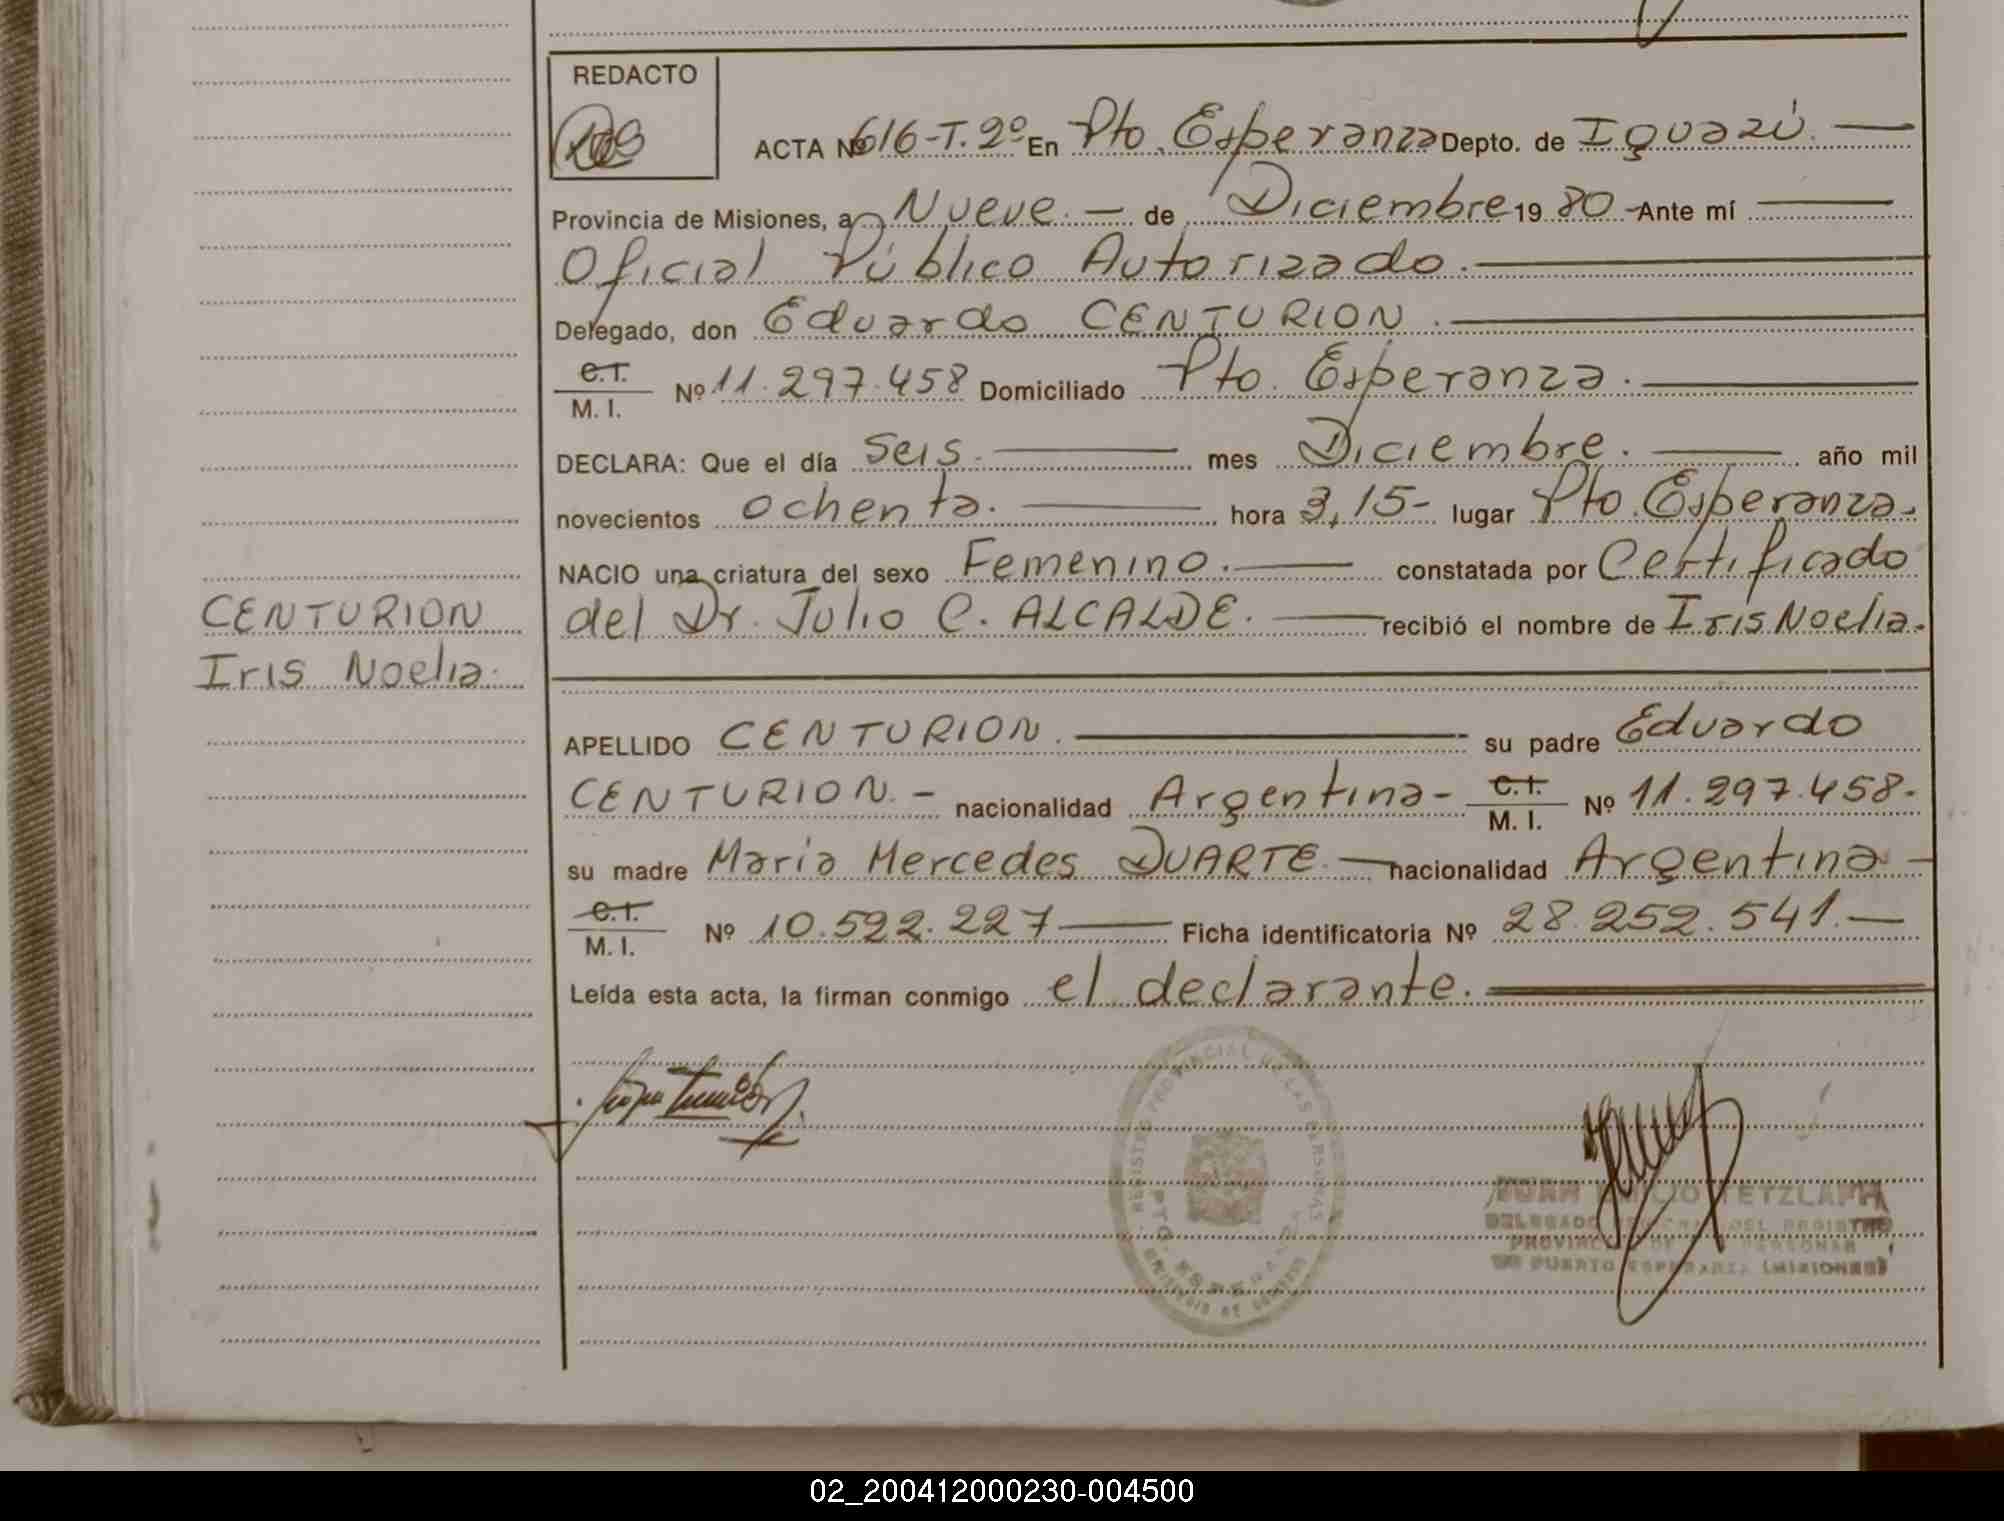 REDACTO
ACTA Nº 616-T.2º En Pto. Esperanza Depto. de Iguazú.
Provincia de Misiones, a Nueve. - de Diciembre 19 80 - Ante mí
Oficial Público Autorizado.
Delegado, don Eduardo CENTURION.
C.I.
M. I. Nº 11.297.458 Domiciliado Pto. Esperanza.
DECLARA: Que el día Seis. mes Diciembre. año mil
novecientos ochenta. hora 3,15- lugar Pto. Esperanza.
NACIO una criatura del sexo Femenino. constatada por Certificado
del Dr. Julio C. ALCALDE. recibió el nombre de Iris Noelia.
CENTURION
Iris Noelia.
APELLIDO CENTURION. su padre Eduardo
CENTURION. - nacionalidad Argentina - C.I. M. I. Nº 11.297.458.
su madre Maria Mercedes DUARTE. nacionalidad Argentina -
C.I.
M. I. Nº 10.592.227 Ficha identificatoria Nº 28.252.541.
Leída esta acta, la firman conmigo el declarante.
REGISTRO PROVINCIAL DE LAS PERSONAS
PTO. ESPERANZA
JUAN TETZLAFF
DELEGADO DEL REGISTRO
PROVINCIAL DE PERSONAS
DE PUERTO ESPERANZA (MISIONES)
02_200412000230-004500